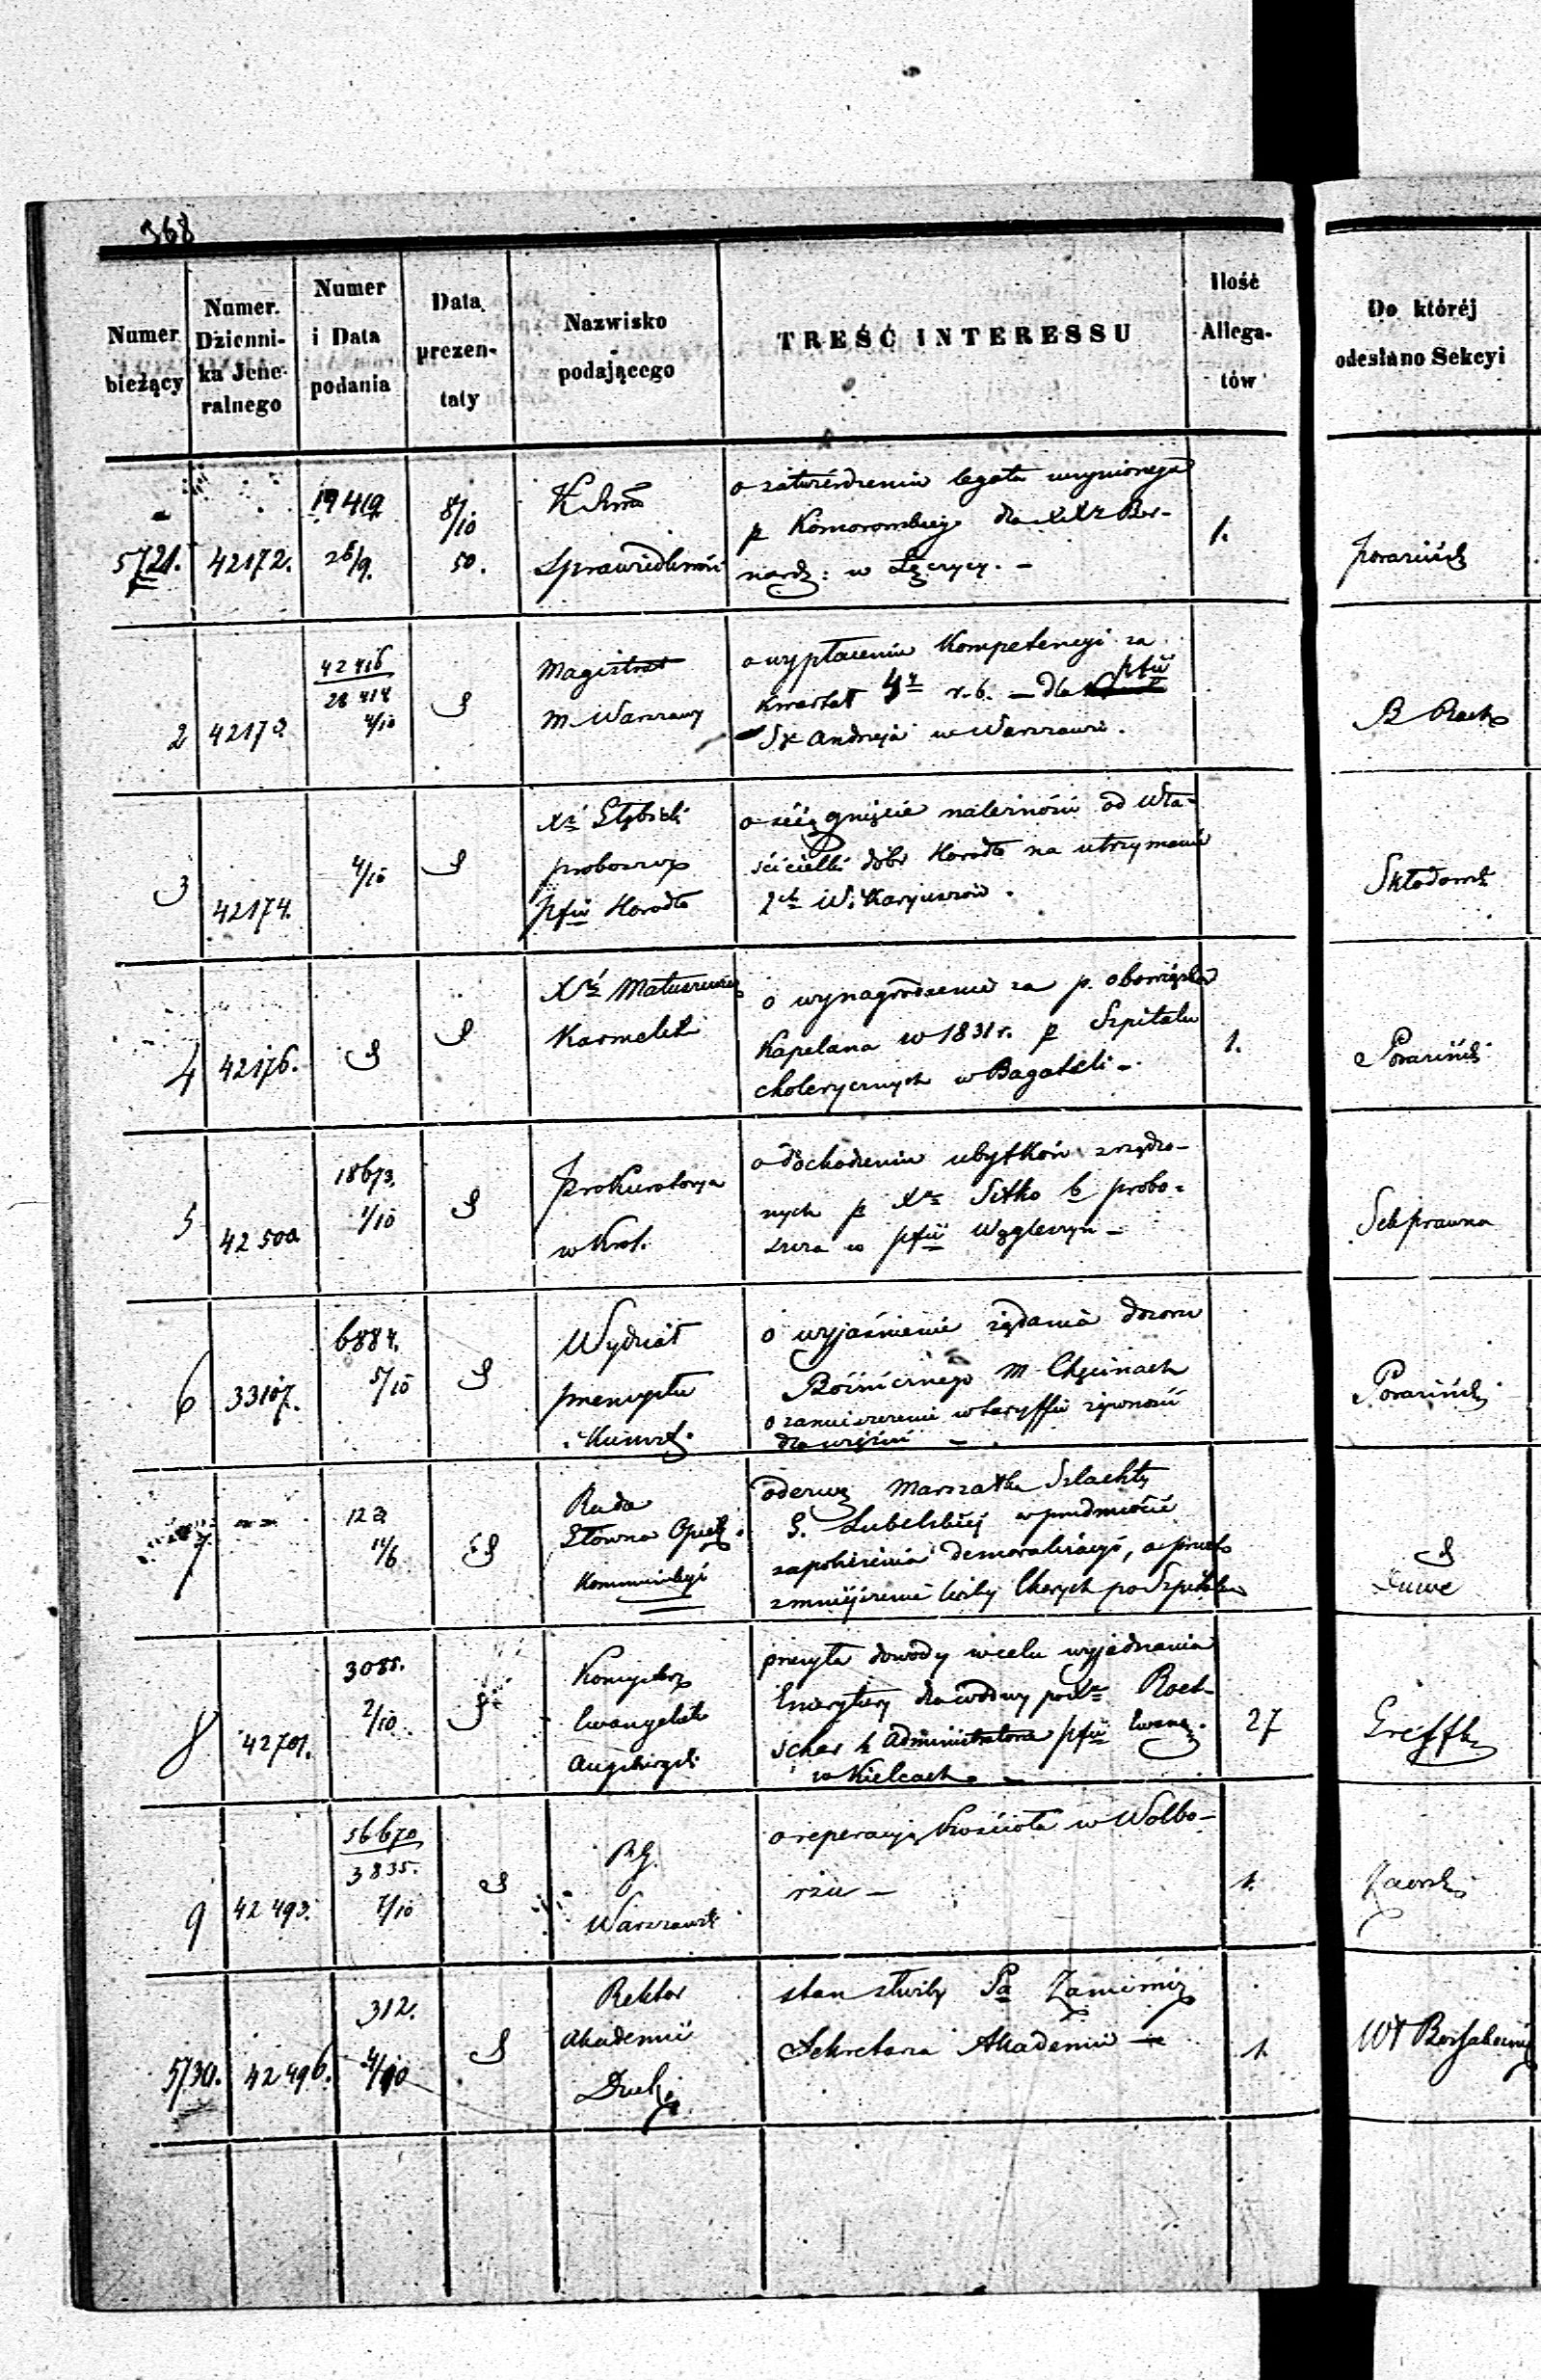 368
Numer bieżący
Numer Dziennika Jeneralnego
Numer i Data podania
Data prezentaty
Nazwisko podającego
TREŚĆ INTERESSU
Ilość Allegatów
Do któréj odesłano Sekcyi
5721. 42172. 19419 26/9. 8/10 50.
Sprawiedliwości
o zatwierdzenie legatu uczynionego
p Komorowskiego dla XXr Ber-
nardz: w Łęczycy. -
1.
Porazińsk
2 42173 42416 28414 4/10
Magistrat
m Warszawy
o wypłacenie Kompetencyi za
kwartał 4y r. b. — dla pfii
Sx Andrzeja w Warszawie.
3 42174. 4/10
proboszcz
pfii Horodło
o ściągnięcie należności od Wła-
ścicielki dóbr Horodło na utrzymanie
2ch Wikaryuszów.
Skłodowsk
4 42176.
Xdz Matuszewicz
Karmelit
o wynagrodzenie za p. obowiązków
Kapelana w 1831 r. p Szpitalu
cholerycznych w Bagateli -
1.
Porazińsk
5 42500 18673. 1/10
Prokuratorya
w Król.
o dochodzenie ubytków zrządzo-
nych p Xdz Sitko b probo-
szcza w pfii Węgleszyn -
Sek prawna
6 33107. 6884. 5/10
Wydział
przemysłu
i Kunszt.
o wyjaśnienie żądania dozoru
Bóźnicznego m Chęcinach
o zamieszczenie w taryffie żywności
dla więźni -
Porazińsk
7 — 123 11/6
Rada
Główna Opiek.
Kommunikacyi
odezwę Marszałka Szlachty
G. Lubelskiej w przedmiocie
zapobieżenia demoralizacyi, a przeto
zmniejszenie liczby Chorych po Szpitalu
8 42701. 3085. 2/10
Konsystorz
Ewangelick
Augsburgsk
przesyła dowody w celu wyjednania
Emerytury dla wdowy po Xdz Roet-
scher b Administratora pfii Ewang.
w Kielcach. -
27
9 42493. 56670 3835. 7/10
RG.
Warszawsk
o reperacyę Kościoła w Wolbo-
rzu —
1.
5730. 42496. 312. 4/10
Rektor
Akademii
Duch.
stan służby Pa
Sekretarza Akademii —
1.